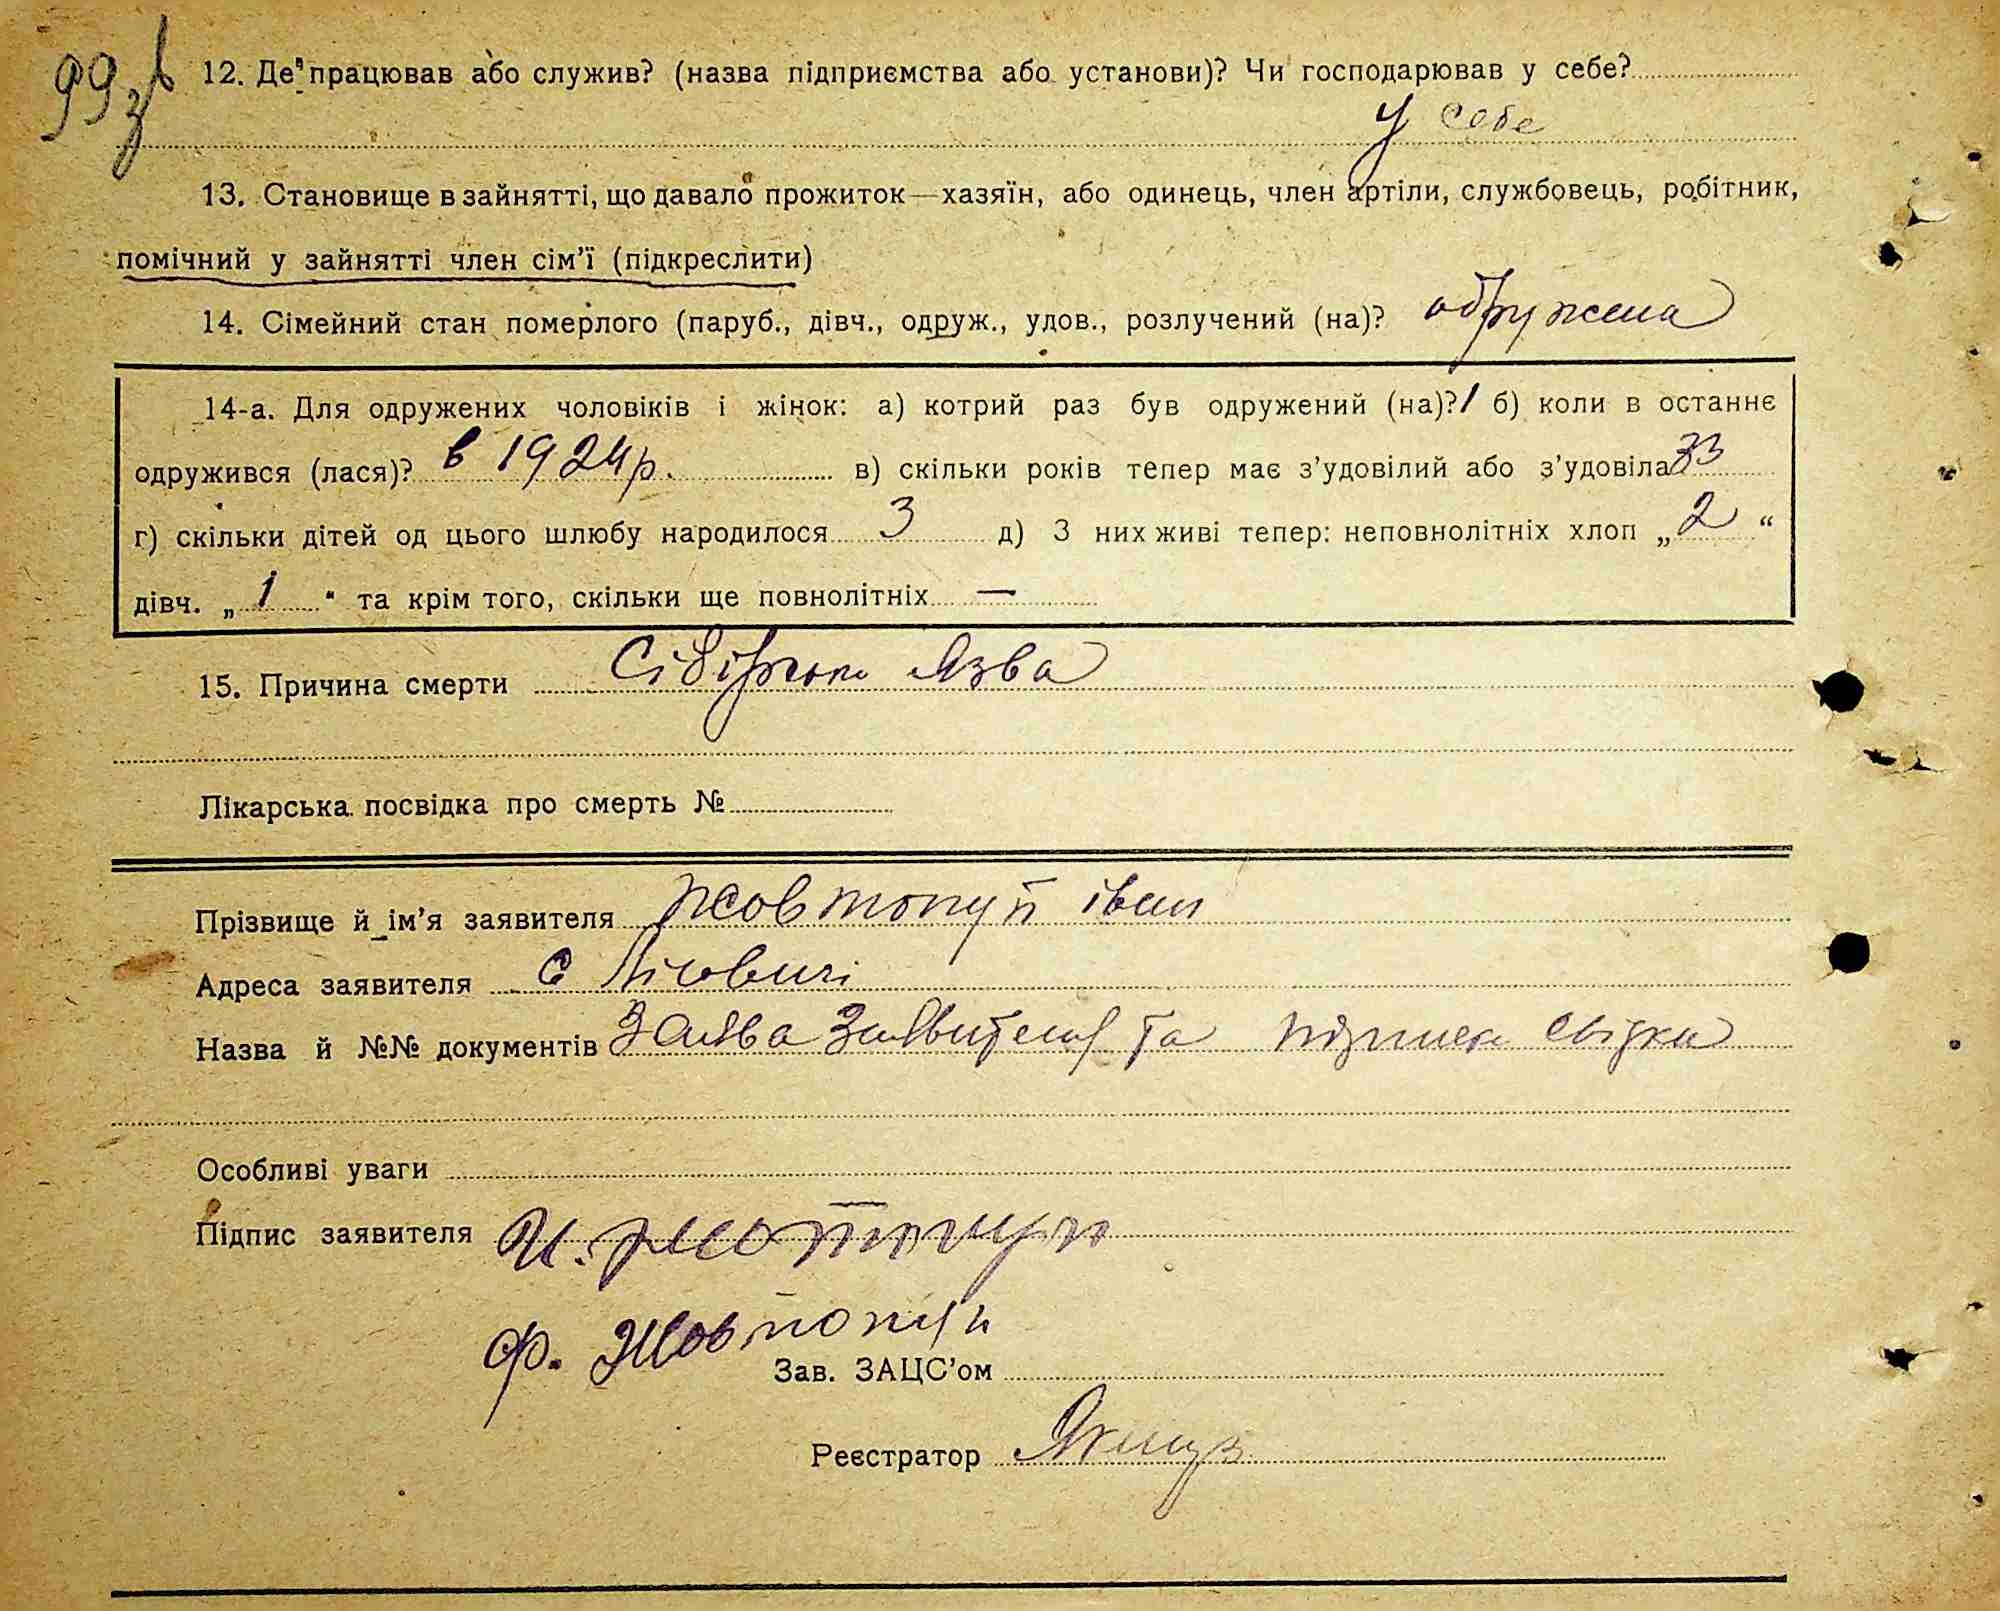 99 зв
12. Де працював або служив? (назва підприємства або установи)? Чи господарював у себе?
У себе
13. Становище в зайнятті, що давало прожиток—хазяїн, або одинець, член артіли, службовець, робітник,
помічний у зайнятті член сім'ї (підкреслити)
14. Сімейний стан померлого (паруб., дівч., одруж., удов., розлучений (на)? одружена
14-а. Для одружених чоловіків і жінок: а) котрий раз був одружений (на)? 1 б) коли в останнє
одружився (лася)? в 1924 р. в) скільки років тепер має з'удовілий або з'удовіла 33
г) скільки дітей од цього шлюбу народилося 3 д) З них живі тепер: неповнолітніх хлоп „ 2 “
дівч. „ 1 “ та крім того, скільки ще повнолітніх —
15. Причина смерти Сібірська Язва
Лікарська посвідка про смерть №
Прізвище й ім'я заявителя Жовтопуп Іван
Адреса заявителя с Лісовичі
Назва й №№ документів Заява Заявителя та підписка Свідки
Особливі уваги
Підпис заявителя И. Жотопуп
Ф. Жовтопуп
Зав. ЗАЦС'ом
Реєстратор